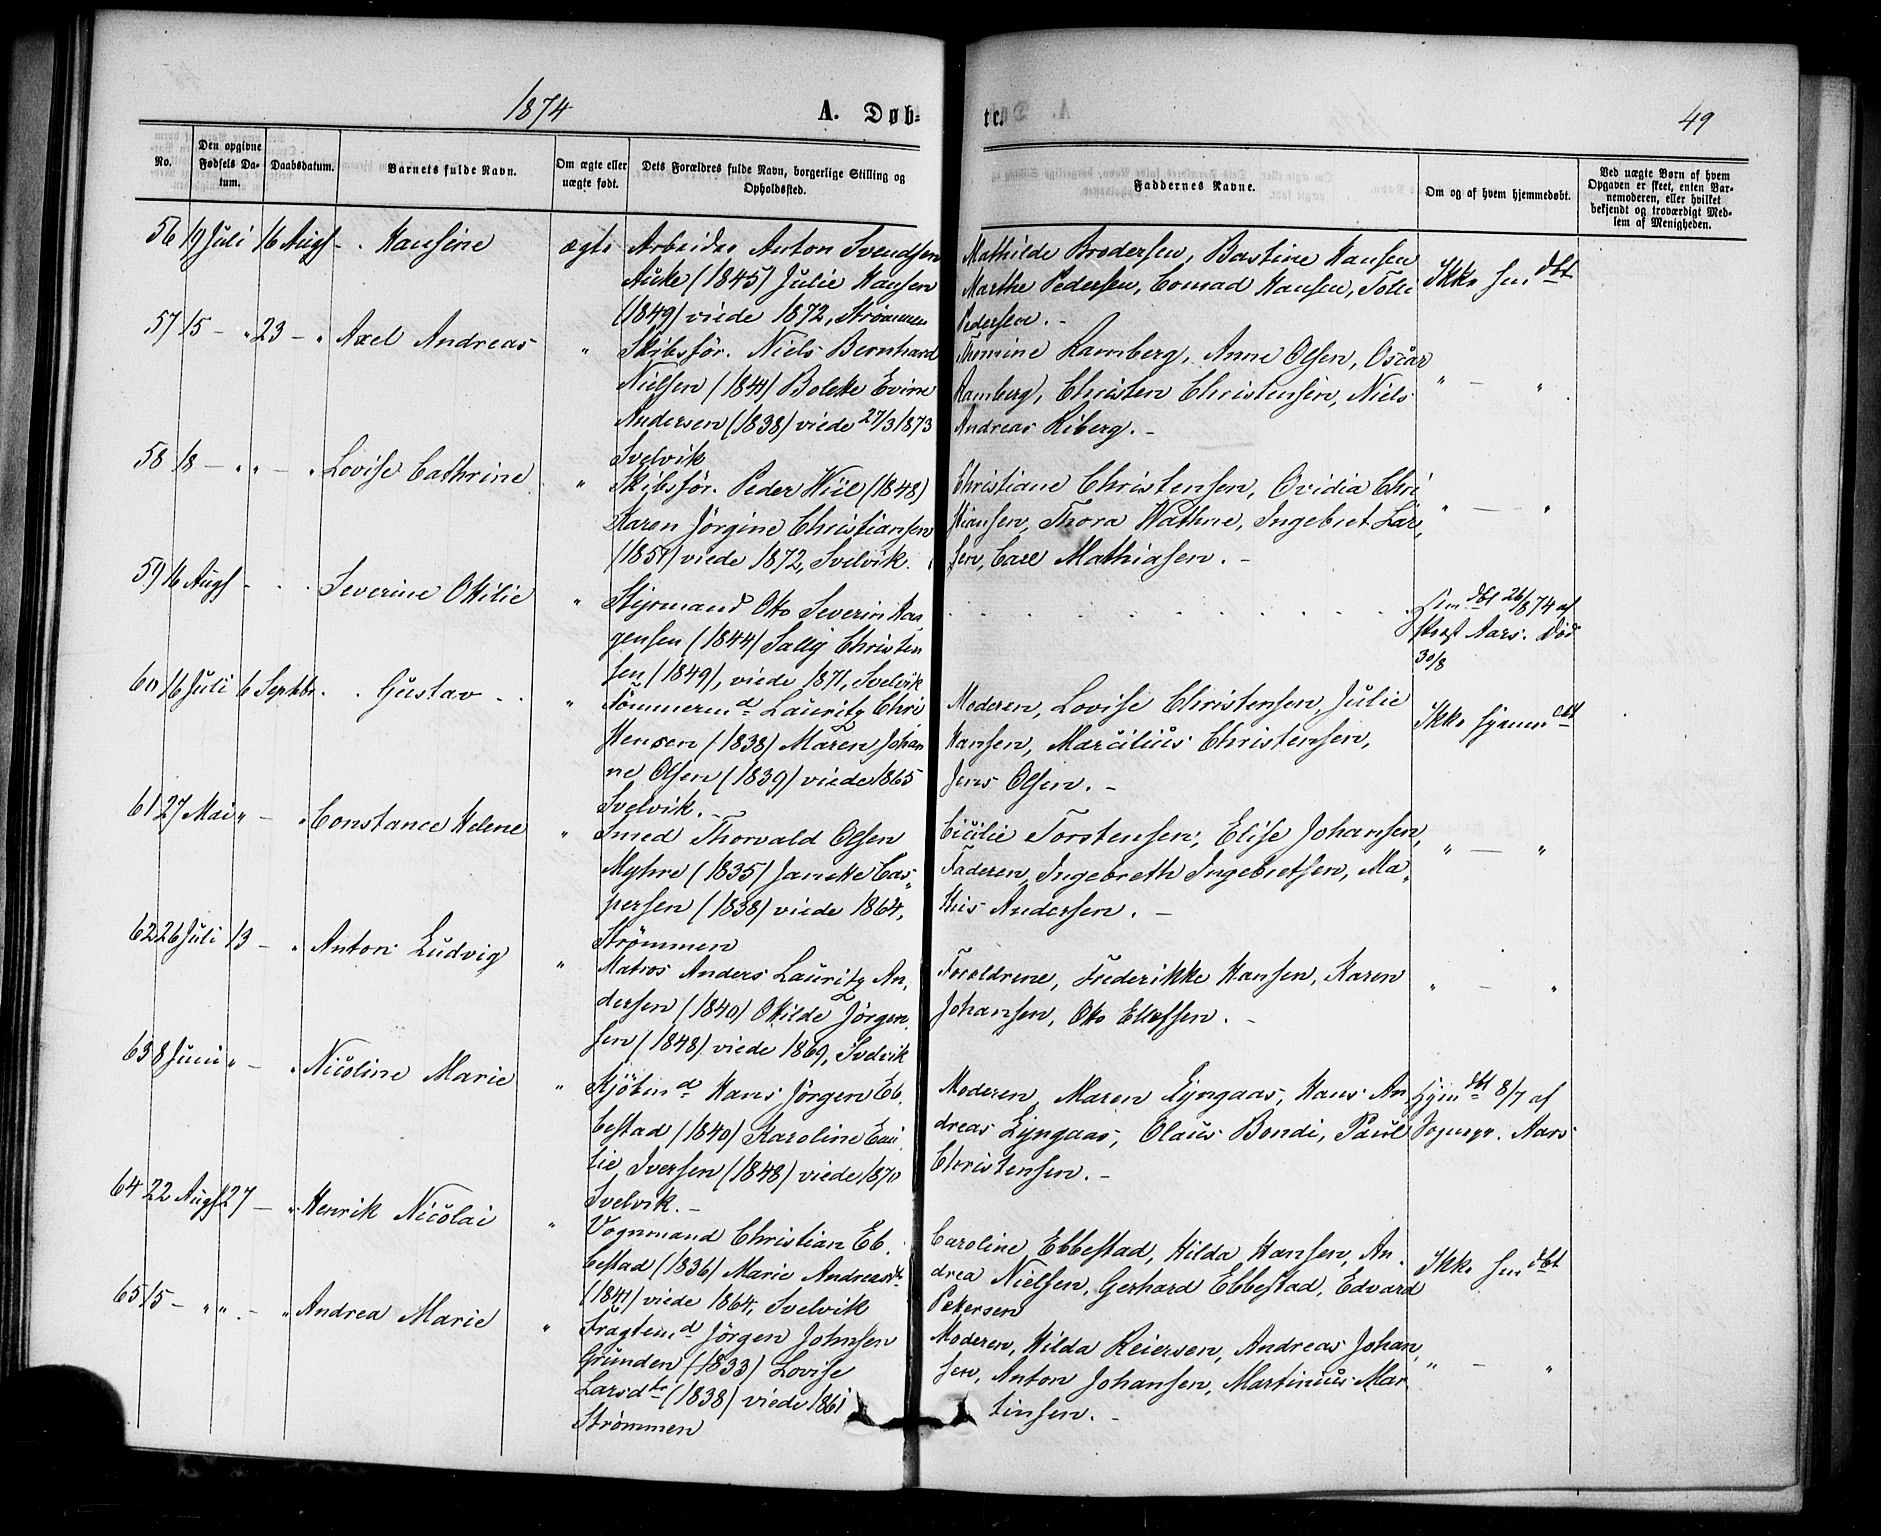 1874
A. Døb=
te.
49
No.
Den opgivne Fødsels Da-tum.
Daabsdatum.
Barnets fulde Navn.
Om ægte eller uægte født.
Dets Forældres fulde Navn, borgerlige Stilling og Opholdssted.
Faddernes Navne.
Om og af hvem hjemmedøbt.
Ved uægte Børn af hvem Opgaven er skeet, enten Bar-nemoderen, eller hvilket bekjendt og troværdigt Med-lem af Menigheden.
56 19 Juli 16 Augst - . Hansine ægte Arbeider Anton Svendsen
Aicke (1845) Julie Hansen
(1849) viede 1872, Strømmen
Mathilde Brodersen, Bastine Hansen
Marthe Pedersen, Conrad Hansen, Tolle
Pedersen. -
Ikke hm dbt
57 15 - " 23 - " Axel Andreas " Skibsför. Niels Bernhard
Nielsen (1841) Bolette Evine
Andersen (1838) viede 27/3 1873
Svelvik
Thomine Ramberg, Anne Olsen, Oscar
Ramberg, Christen Christensen, Niels
Andreas Riberg. -
" — "
58 18 - " " - " Lovise Cathrine " Skibsför. Peder Wiil (1848)
Karen Jörgine Christiansen
(1851) viede 1872, Svelvik.
Christiane Christensen, Ovidia Chri
stiansen, Thora Wathne, Ingebret Lar,
sen, Carl Mathiasen. -
" — "
59 16 Augst - . . Severine Ottilie " Styrmand Otto Severin Haa
gensen (1844) Sally Christen
sen (1849), viede 1871, Svelvik
hm dbt 26/8 74 af
Præst Aars. Död
30/8
60 16 Juli 6 Septbr. . Gustav - . " Tömmermd Lauritz Chri
stensen (1838) Maren Johan
ne Olsen (1839) viede 1865
Svelvik. -
Moderen, Lovise Christensen, Julie
Hansen, Marcilius Christensen,
Jens Olsen. -
Ikke hjemmdbt
61 27 Mai " - " Constance Helene " Smed Thorvald Olsen
Myhre (1835) Janette Cas„
persen (1838) viede 1864,
Strömmen
Cicilie Torstensen, Elise Johansen,
Faderen, Ingebreth Ingebretsen, Ma„
this Andersen. -
" — "
62 26 Juli 13 - " Anton Ludvig " Matros Anders Lauritz An,
dersen (1840) Otilde Jörgen,
sen (1848) viede 1869, Svelvik
Forældrene, Frederikke Hansen, Karen
Johansen, Otto Ellefsen. -
" - "
63 8 Juni " - " Nicoline Marie " Kjöbmd Hans Jörgen Eb,
bestad (1840) Karoline Emi
lie Iversen (1848) viede 1870
Svelvik. -
Moderen, Maren Lyngaas, Hans An
dreas Lyngaas, Olaus Bondi, Paul
Christensen. -
Hjmdbt 8/7 af
Sognepr. Aars
64 22 Augst 27 - " Henrik Nicolai " Vognmand Christian Eb,
bestad (1836) Marie Andreasdtr
(1841) viede 1864, Svelvik
Caroline Ebbestad, Hilda Hansen, An,
drea Nielsen, Gerhard Ebbestad, Edvard
Petersen
Ikke hm dbt
65 15 - " " - " Andrea Marie " Fragtemd Jörgen Johnsen
Grunden (1833) Lovise
Larsdtr (1838) viede 1861
Strömmen
Moderen, Hilda Reiersen, Andreas Johan,
sen, Anton Johansen, Martinius Mar
tinsen. -
" - "